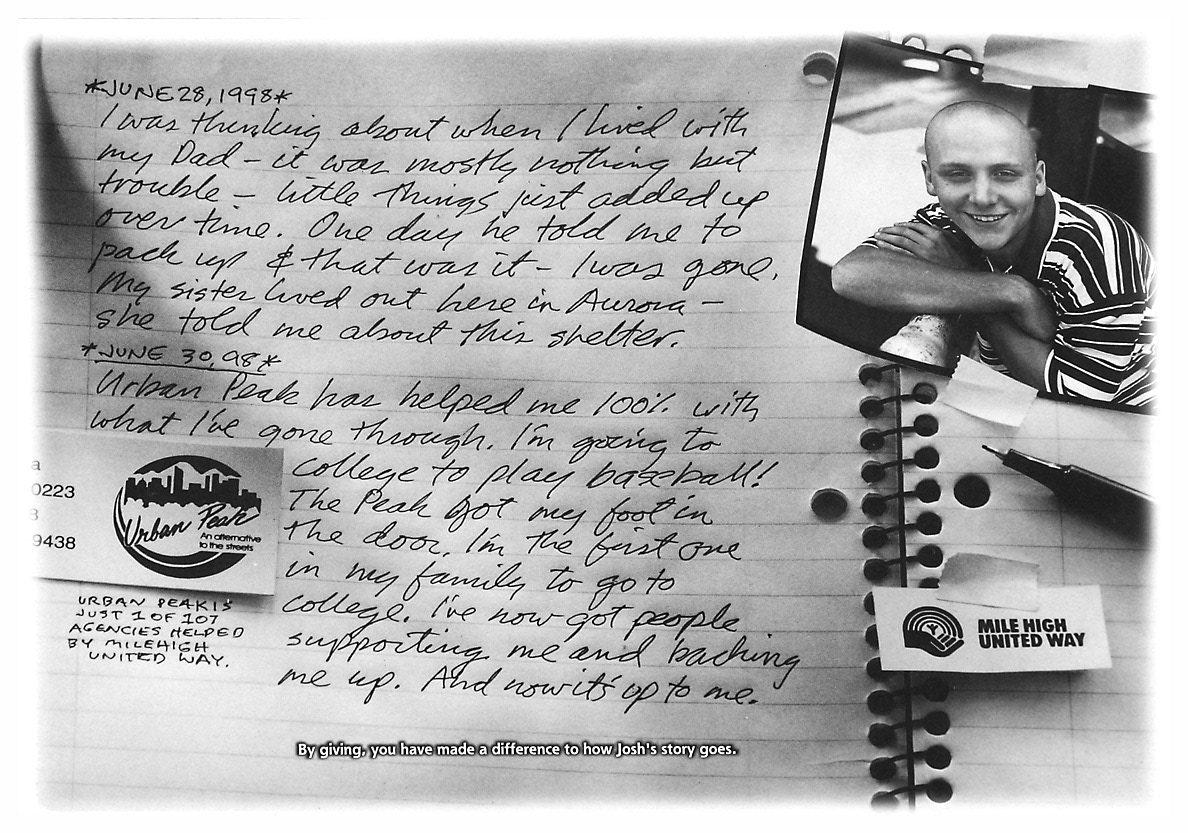 *JUNE 28, 1998*
I was thinking about when I lived with
my Dad - it was mostly nothing but
trouble - little things just added up
over time. One day he told me to
pack up & that was it - I was gone.
My sister lived out here in Aurora -
she told me about this shelter.
*JUNE 30, 98*
Urban Peak has helped me 100% with
what I've gone through. I'm going to
college to play baseball!
The Peak got my foot in
the door. I'm the first one
in my family to go to
college. I've now got people
supporting me and backing
me up. And now it's up to me.
a
0223
3
9438
Urban Peak
An alternative
to the streets
URBAN PEAK IS
JUST 1 OF 107
AGENCIES HELPED
BY MILE HIGH
UNITED WAY.
MILE HIGH
UNITED WAY
By giving, you have made a difference to how Josh's story goes.